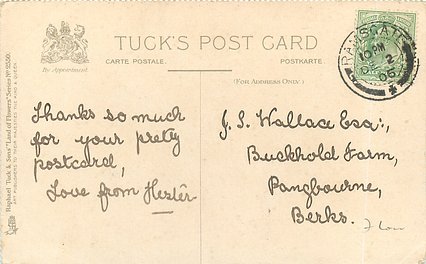 TUCK'S POST CARD
By Appointment.
CARTE POSTALE.
POSTKARTE.
(FOR ADDRESS ONLY.)
RAMSGATE
10 PM
2
06
Raphael Tuck & Sons' "Land of Flowers" Series Nº 2550.
ART PUBLISHERS TO THEIR MAJESTIES THE KING & QUEEN.
Thanks so much
for your pretty
postcard,
Love from Hester
J. S. Wallace Esq:,
Buckhold Farm,
Pangbourne,
Berks.